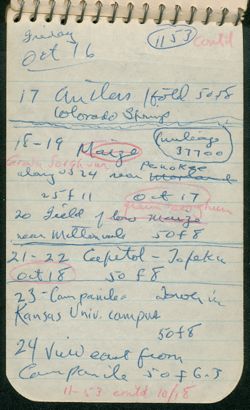 Friday
Oct 16
1153
contd
17 Antlers Hotel 50 f 8
Colorado Springs
18-19 Maize
mileage
37700
Grain Sorghum
along US 24 near
25 f 11
Oct 17
grain sorghum
20 Field of low maize
near 50 f 8
21-22 Capitol - Topeka
Oct 18
50 f 8
23 - Campanile Tower in
Kansas Univ. campus
50 f 8
24 View east from
Campanile 50 f 6.3
11-53 contd 10/18